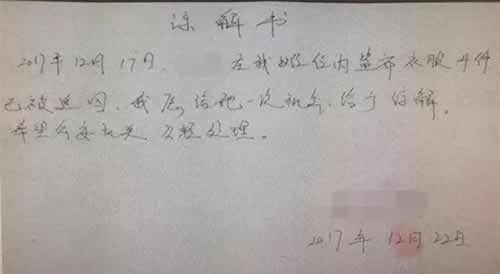 谅解书
2017年12月17日, 在我处住内盗窃衣服4件
已被追回,我愿给他一次机会,给予谅解。
希望公安机关从轻处理。
2017年12月22日